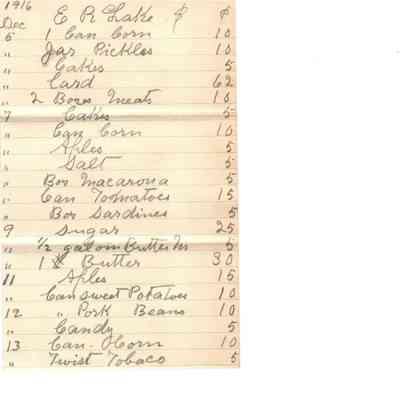 1916
Dec E R Lake $ $
5 1 Can Corn 10
" Jar Pickles 10
" Cakes 5
" Lard 62
" 2 Boxes Meats 10
7 Cakes 5
" Can Corn 10
" Aples 5
" Salt 5
" Box Macarona 5
" Can Tomatoes 15
" Box Sardines 5
9 Sugar 25
" 1/2 galom Butter 5
" 1 Butter 30
11 Aples 15
" Can sweet Potatoes 10
12 " Pork Beans 10
" Candy 5
13 Can Corn 10
" Twist Tobaco 5